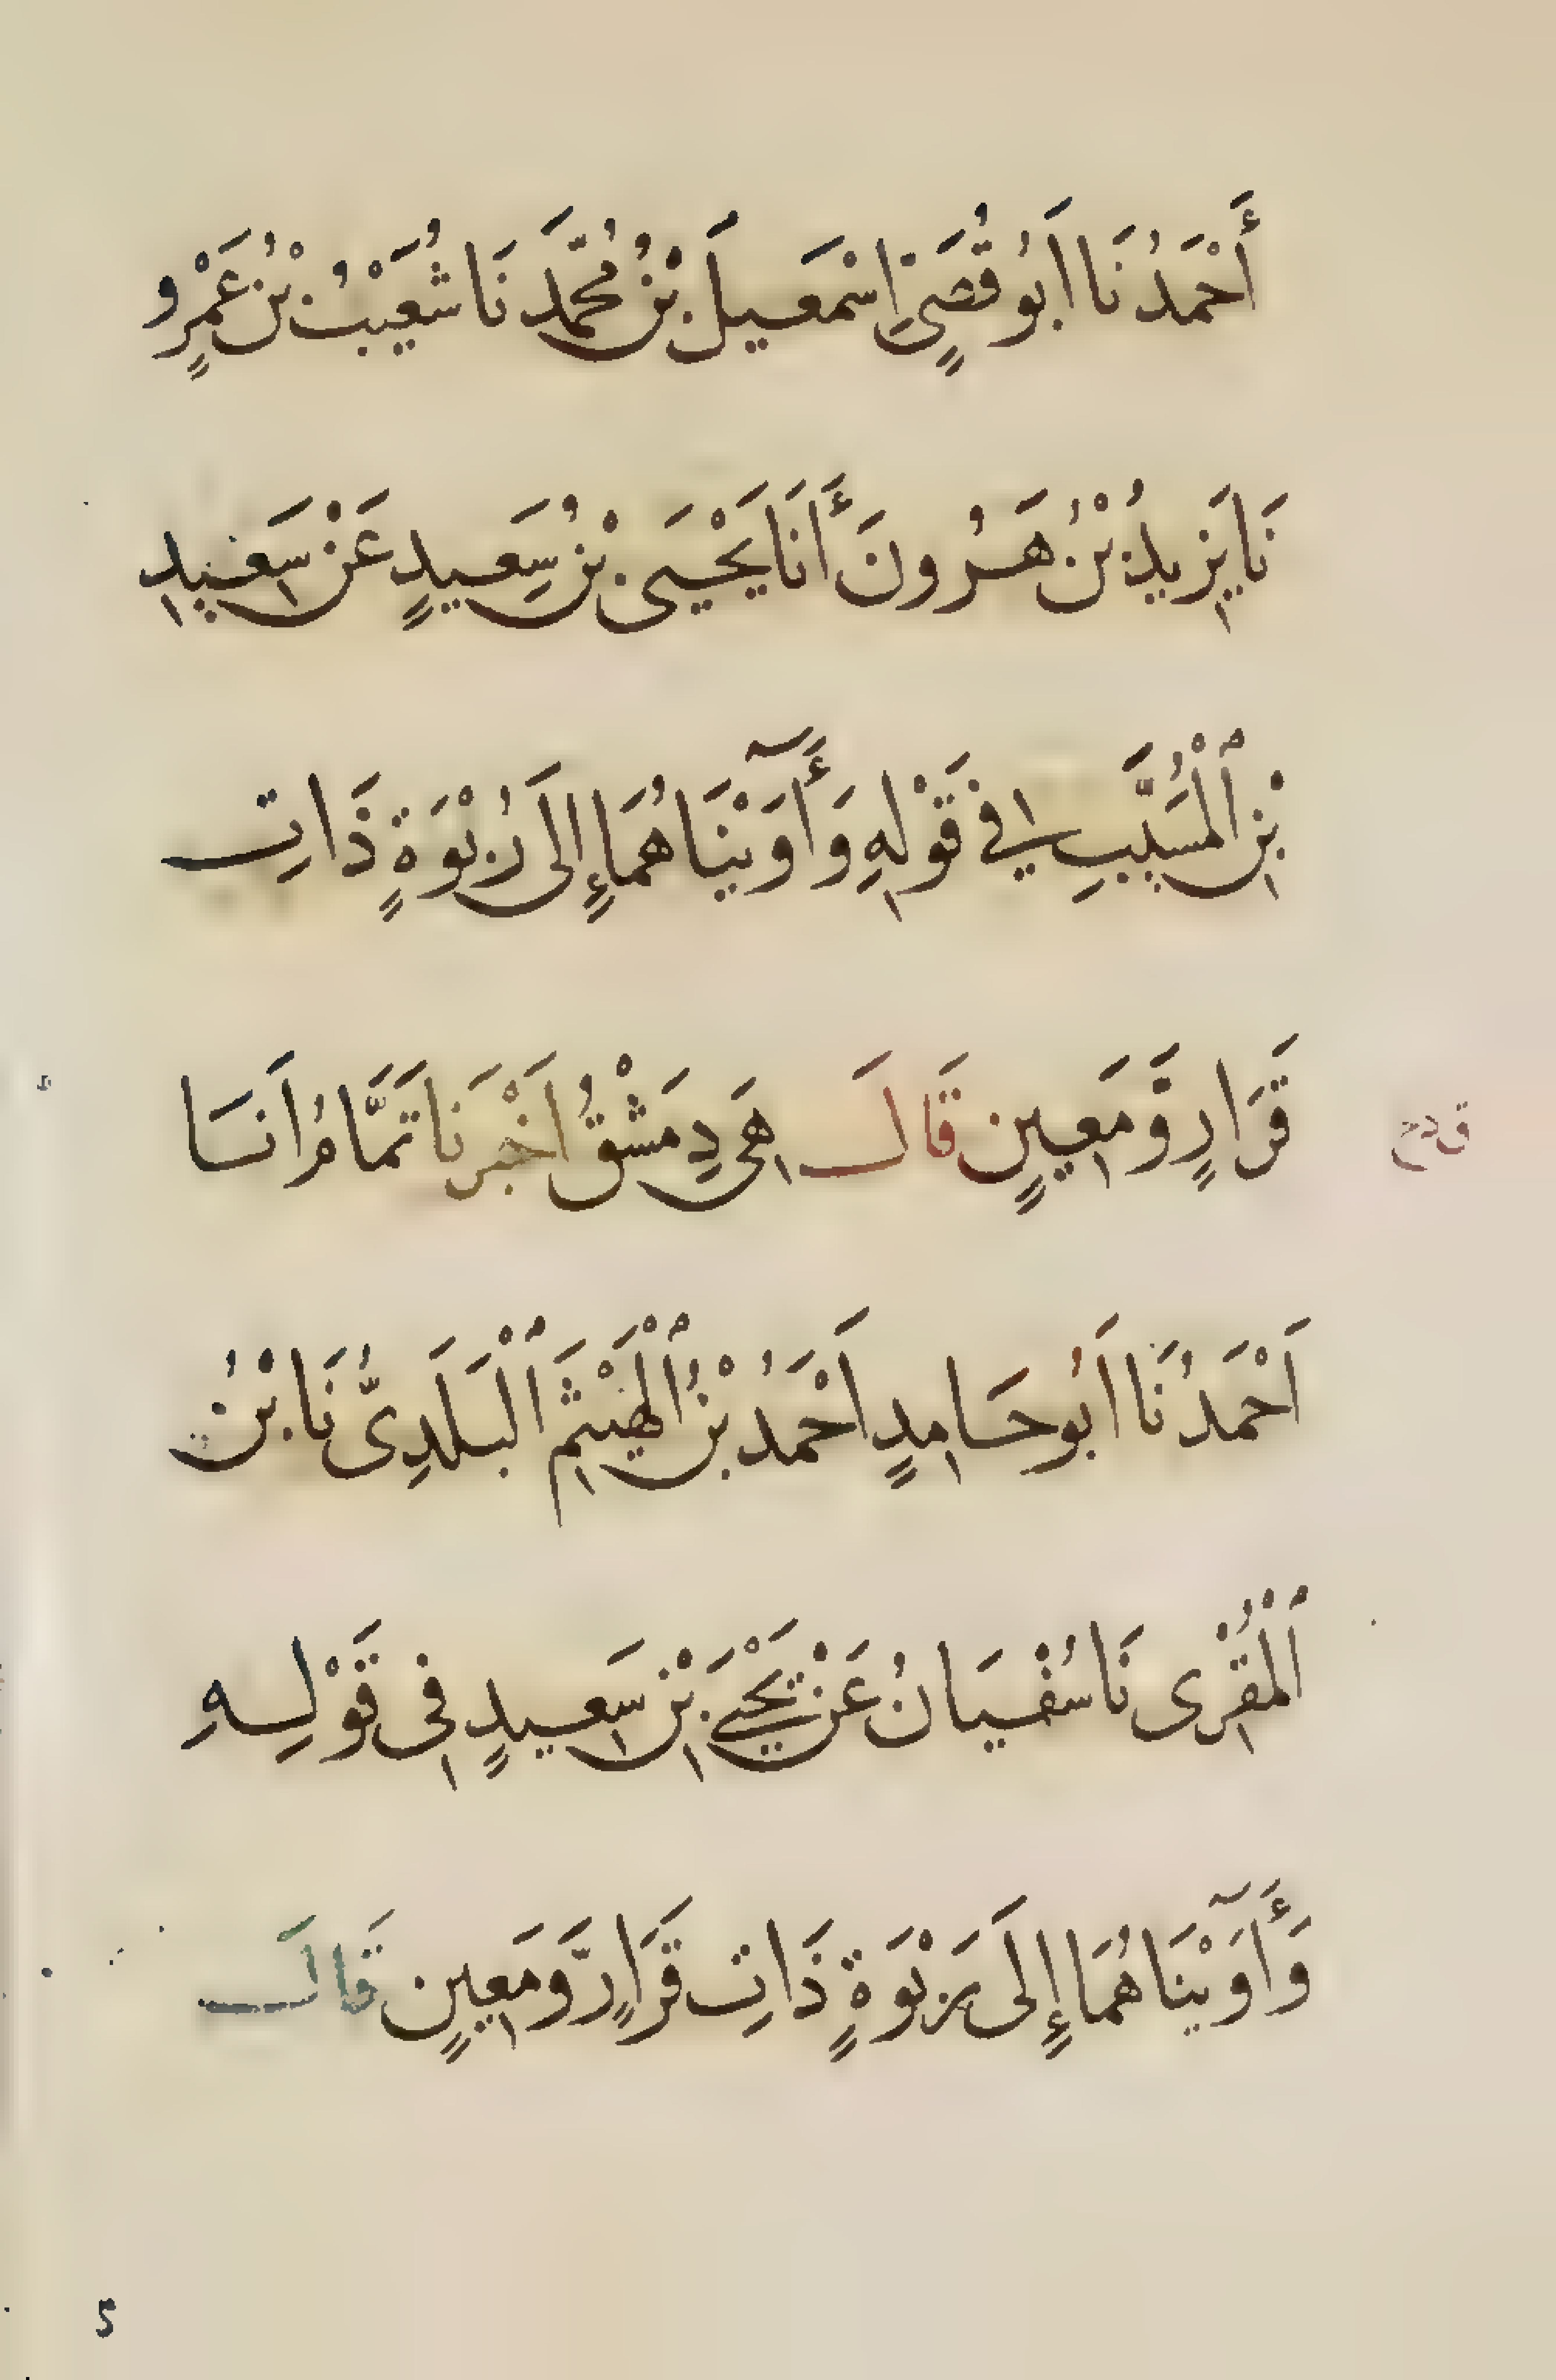 أَحْمَدُ نَا اَبُو قُصَيٍّ اِسْمَعِيلُ بْنُ مُحَمَّدَ نَا شُعَيْبُ بْنُ عَمْرٍو
نَا يَزِيدُ بْنُ هَرُونَ أَنَا يَحْيَى بْنُ سَعِيدٍ عَنْ سَعِيدِ
بْنِ ٱلْمُسَيَّبِ فِي قَوْلِهِ وَأَوَيْنَاهُمَا إِلَى رُبْوَةٍ ذَاتِ
قَرَارٍ وَّمَعِينٍ قَالَ هِيَ دِمَشْقُ اَخْبَرَنَا تَمَّامُ اَنَسَا
اَحْمَدُ نَا اَبُو حَامِدٍ اَحْمَدُ بْنُ ٱلْهَيْثَمِ ٱلْبَلَدِىُّ نَا بْنُ
ٱلْمُقْرِى نَا سُفْيَانُ عَنْ يَحْيَى بْنِ سَعِيدٍ فِى قَوْلِهِ
وَأَوَيْنَاهُمَا إِلَى رَبْوَةٍ ذَاتِ قَرَارٍ وَّمَعِينٍ قَالَ
5